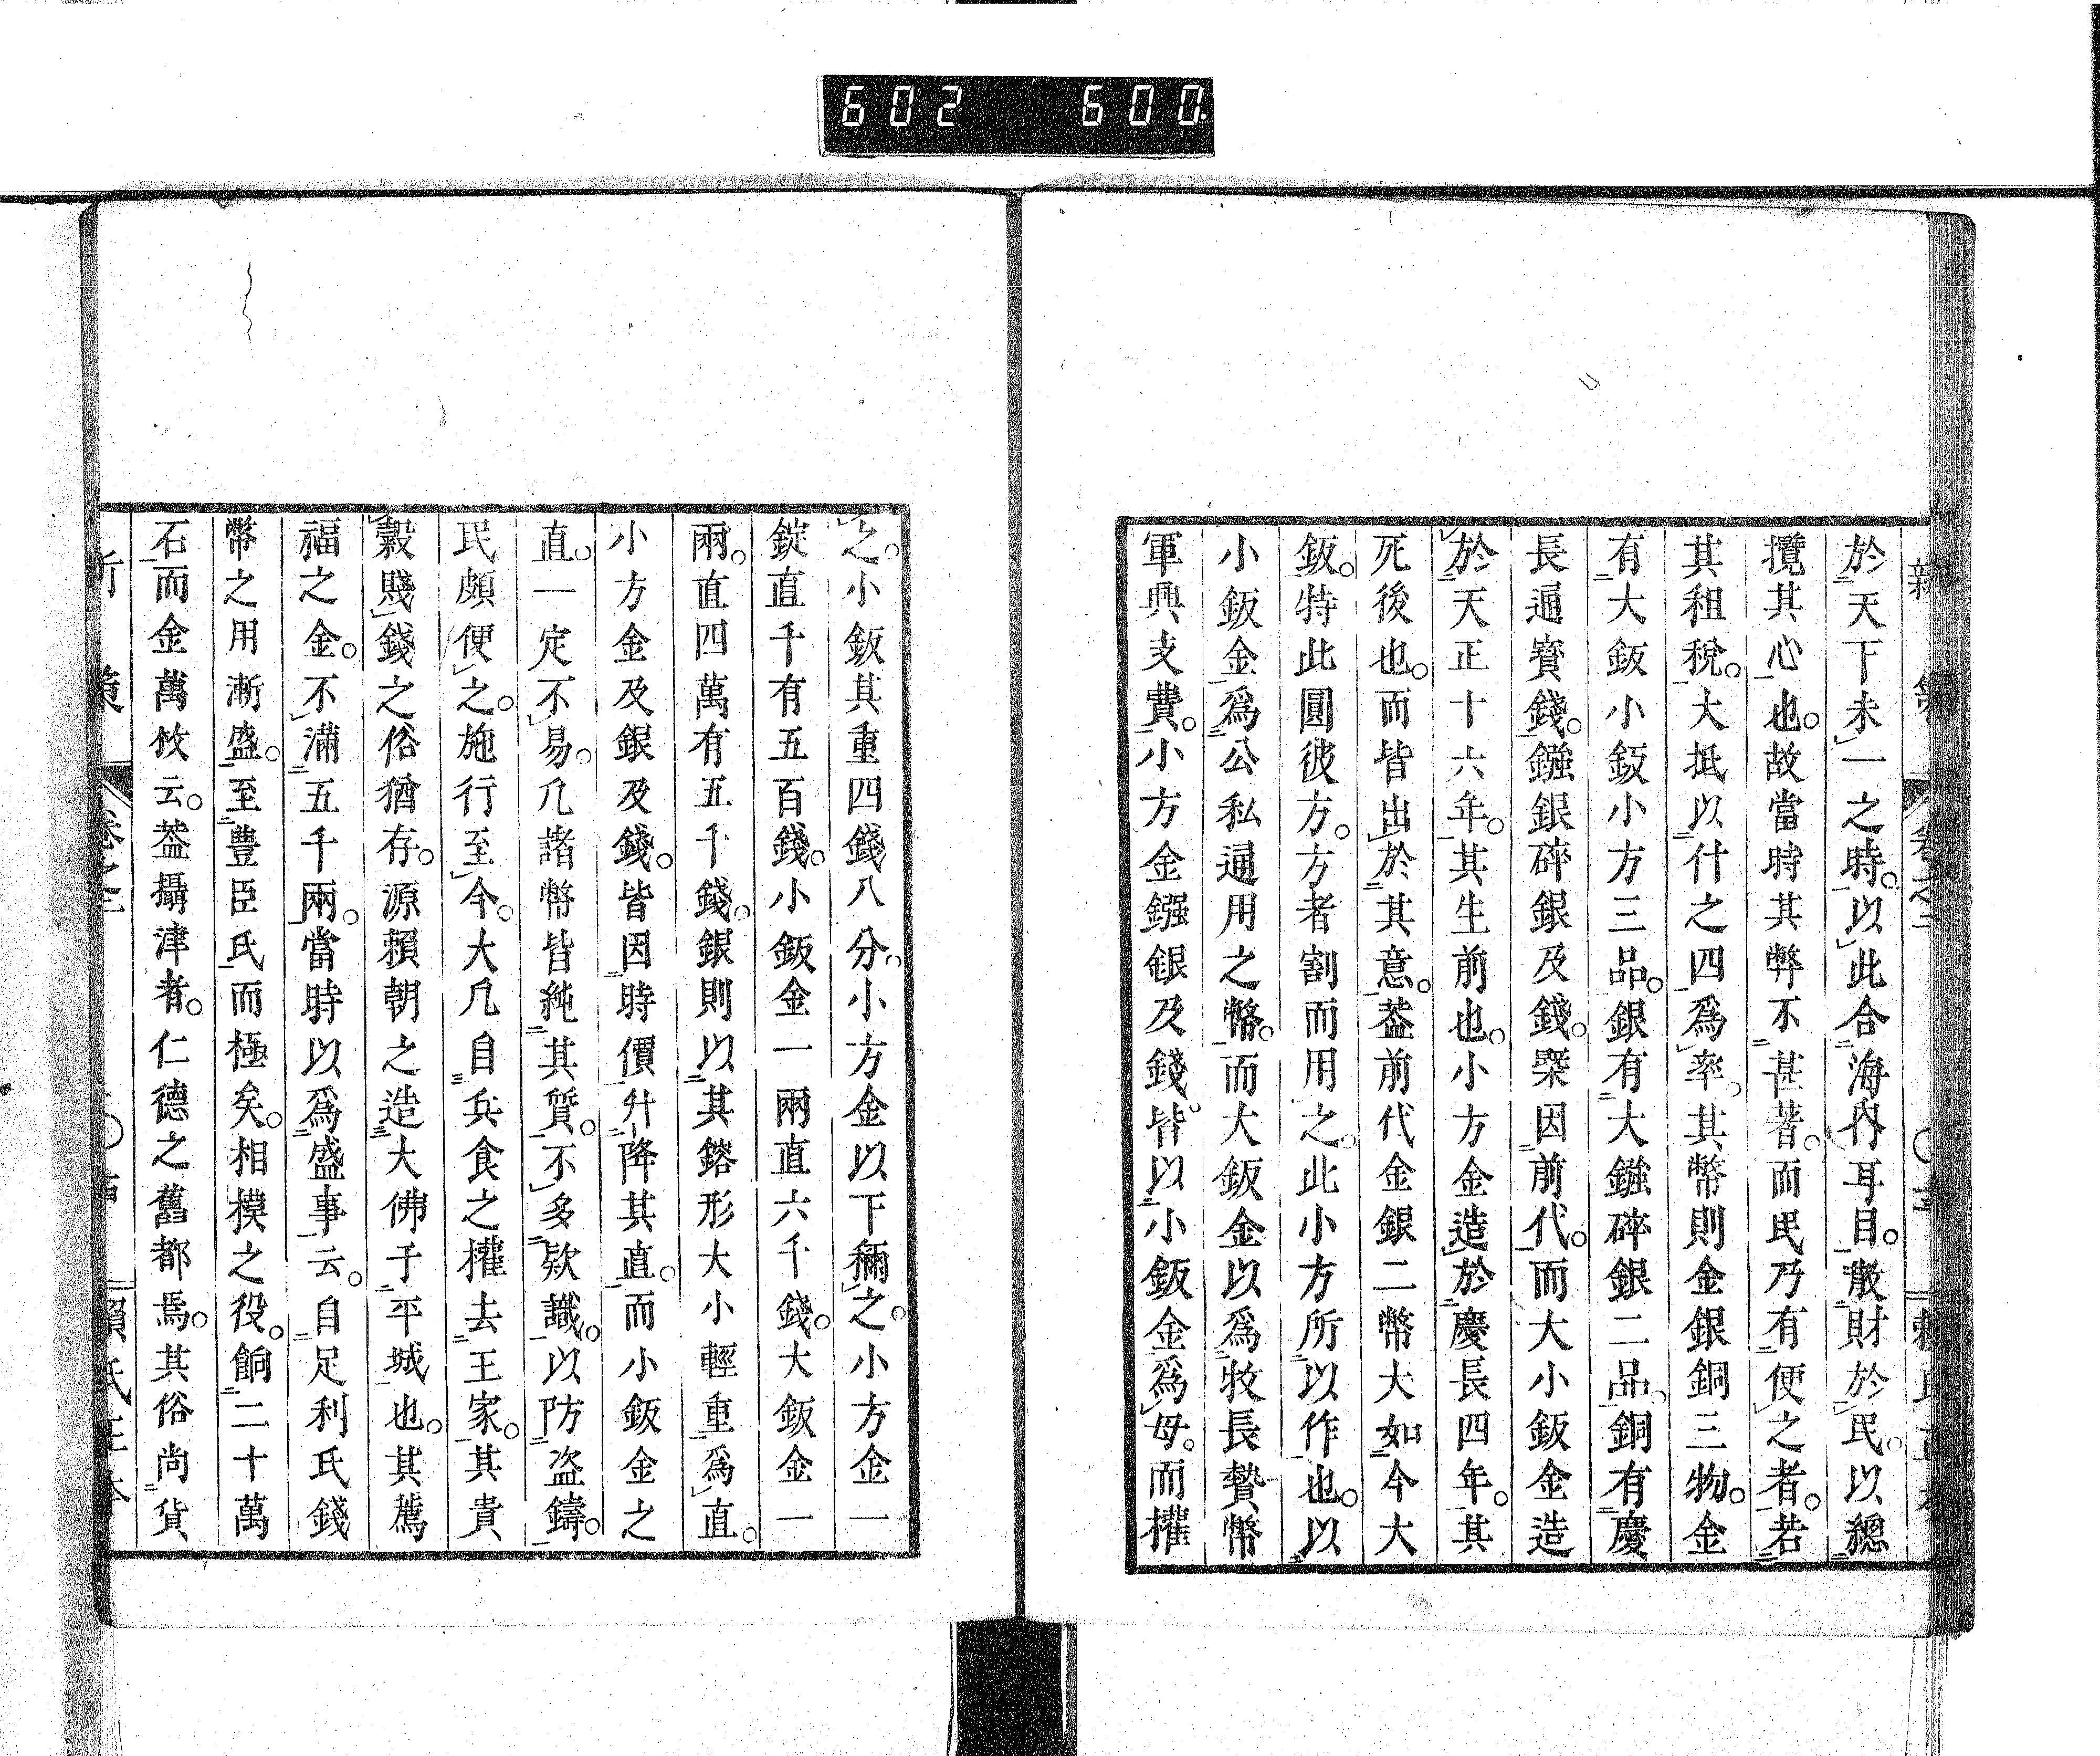 602 600
於天下未一之時。以此合海內耳目。散財於民。以總
攬其心也。故當時其弊不甚著。而民乃有便之者。若
其租稅。大抵以什之四爲率。其幣則金銀銅三物。金
有大鈑小鈑小方三品。銀有大鏹碎銀二品。銅有慶
長通寳錢。鏹銀碎銀及錢。槩因前代。而大小鈑金造
於天正十六年。其生前也。小方金造於慶長四年。其
死後也。而皆出於其意。葢前代金銀二幣大如今大
鈑。特此圓彼方。方者割而用之。此小方所以作也。以
小鈑金爲公私通用之幣。而大鈑金以爲牧長贄幣
軍興支費。小方金鏹銀及錢。皆以小鈑金爲母。而權
之。小鈑其重四錢八分。小方金以下稱之。小方金一
錠直千有五百錢。小鈑金一兩直六千錢。大鈑金一
兩。直四萬有五千錢。銀則以其鎔形大小輕重爲直。
小方金及銀及錢。皆因時價升降其直。而小鈑金之
直。一定不易。凡諸幣皆純其質。不多欵識。以防盜鑄。
民頗便之。施行至今。大凡自兵食之權去王家。其貴
穀賤錢之俗猶存。源賴朝之造大佛于平城也。其薦
福之金。不滿五千兩。當時以爲盛事云。自足利氏錢
幣之用漸盛。至豊臣氏而極矣。相模之役。餉二十萬
石而金萬枚云。葢攝津者。仁德之舊都焉。其俗尚貨
卷之二